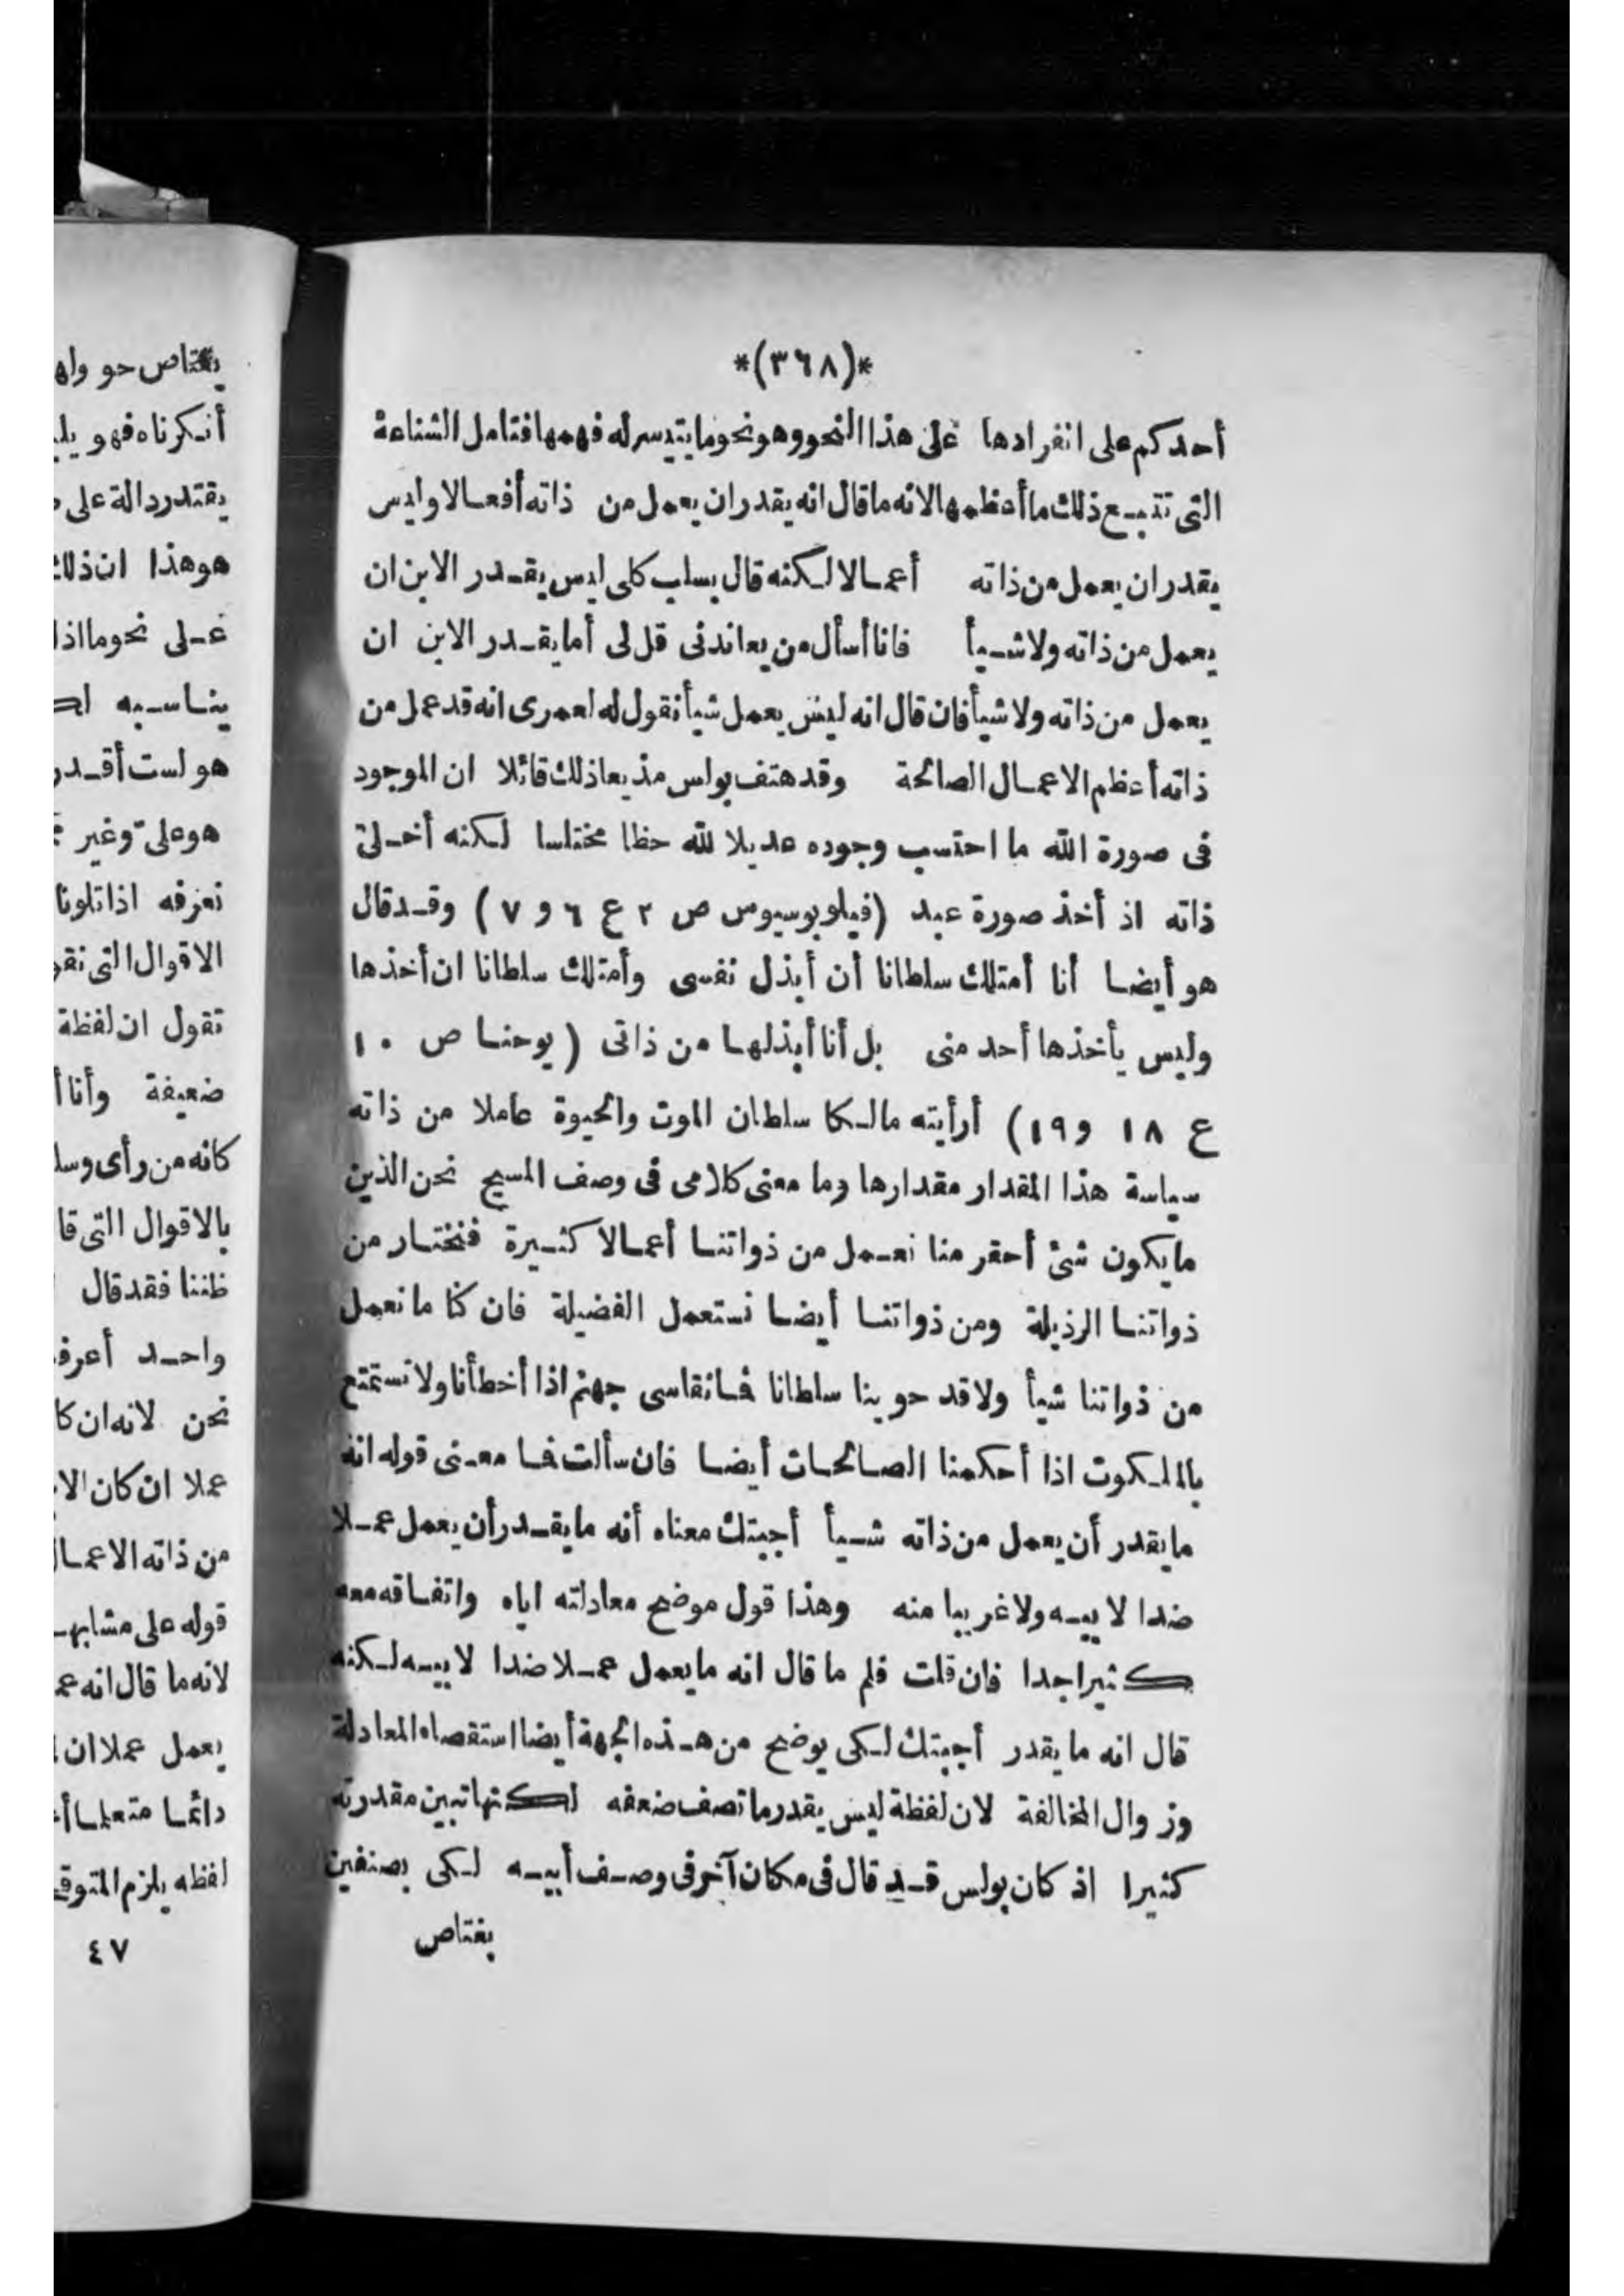 *(٣٦٨)*
أحدكم على انفرادها على هذا النحو وهو نحو ما يتيسر له فهمها فتامل الشناعة
التى تتبع ذلك ما أعظمها لانه ما قال انه يقدر ان يعمل من ذاته أفعالا وليس
يقدر ان يعمل من ذاته أعمالا لكنه قال بسلب كلى ليس يقدر الابن ان
يعمل من ذاته ولا شيأ فانا أسأل من يعاندنى قل لى أما يقدر الابن ان
يعمل من ذاته ولا شيأ فان قال انه ليس يعمل شيأ نقول له لعمرى انه قد عمل من
ذاته أعظم الاعمال الصالحة وقد هتف بولس مذيعا ذلك قائلا ان الموجود
فى صورة الله ما احتسب وجوده عديلا لله حظا مختلسا لكنه أخلى
ذاته اذ أخذ صورة عبد (فيلوبوسيوس ص ٢ ع ٦ و ٧) وقد قال
هو أيضا أنا أمتلك سلطانا أن أبذل نفسى وأمتلك سلطانا ان أخذها
وليس يأخذها أحد منى بل أنا أبذلها من ذاتى (يوحنا ص ١٠
ع ١٨ و ١٩) أرأيته مالكا سلطان الموت والحيوة عاملا من ذاته
سياسة هذا المقدار مقدارها وما معنى كلامى فى وصف المسيح نحن الذين
ما يكون شئ أحقر منا نعمل من ذواتنا أعمالا كثيرة فنختار من
ذواتنا الرذيلة ومن ذواتنا أيضا نستعمل الفضيلة فان كنا ما نعمل
من ذواتنا شيأ ولا قد حوينا سلطانا فسانقاسى جهنم اذا أخطأنا ولا نستمتع
بالملكوت اذا أحكمنا الصالحات أيضا فان سألت فما معنى قوله انه
ما يقدر أن يعمل من ذاته شيأ أجبتك معناه أنه ما يقدر أن يعمل عملا
ضدا لابيه ولا غريبا منه وهذا قول موضح معادلته اياه واتفاقه معه
كثيرا جدا فان قلت فلم ما قال انه ما يعمل عملا ضدا لابيه لكنه
قال انه ما يقدر أجبتك لكى يوضح من هذه الجهة أيضا استقصاء المعادلة
وزوال المخالفة لان لفظة ليس يقدر ما تصف ضعفه لكنها تبين مقدرته
كثيرا اذ كان بولس قد قال فى مكان آخر فى وصف أبيه لكى بصنفين
يغتاص
يغتاص حو
أنكرناه فهو
يقتدر دالة على
هو هذا ان ذلك
على نحو ما اذا
يناسبه
هو لست أقدر
هو على وغير
نعرفه اذا تلونا
الاقوال التى
تقول ان لفظة
ضعيفة وأنا
كانه من رأى
بالاقوال التى
ظننا فقد قال
واحد
نحن لانه ان
عملا ان كان
من ذاته
قوله على
لانه ما قال انه
يعمل عملا ان
دائما متعلما
لفظه يلزم
٤٧